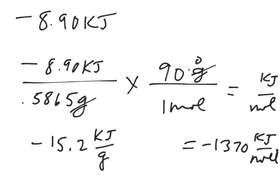 -8.90KJ
-8.90KJ
.5865g × 90.0g / 1mol = KJ/mol
-15.2 KJ/g = -1370 KJ/mol